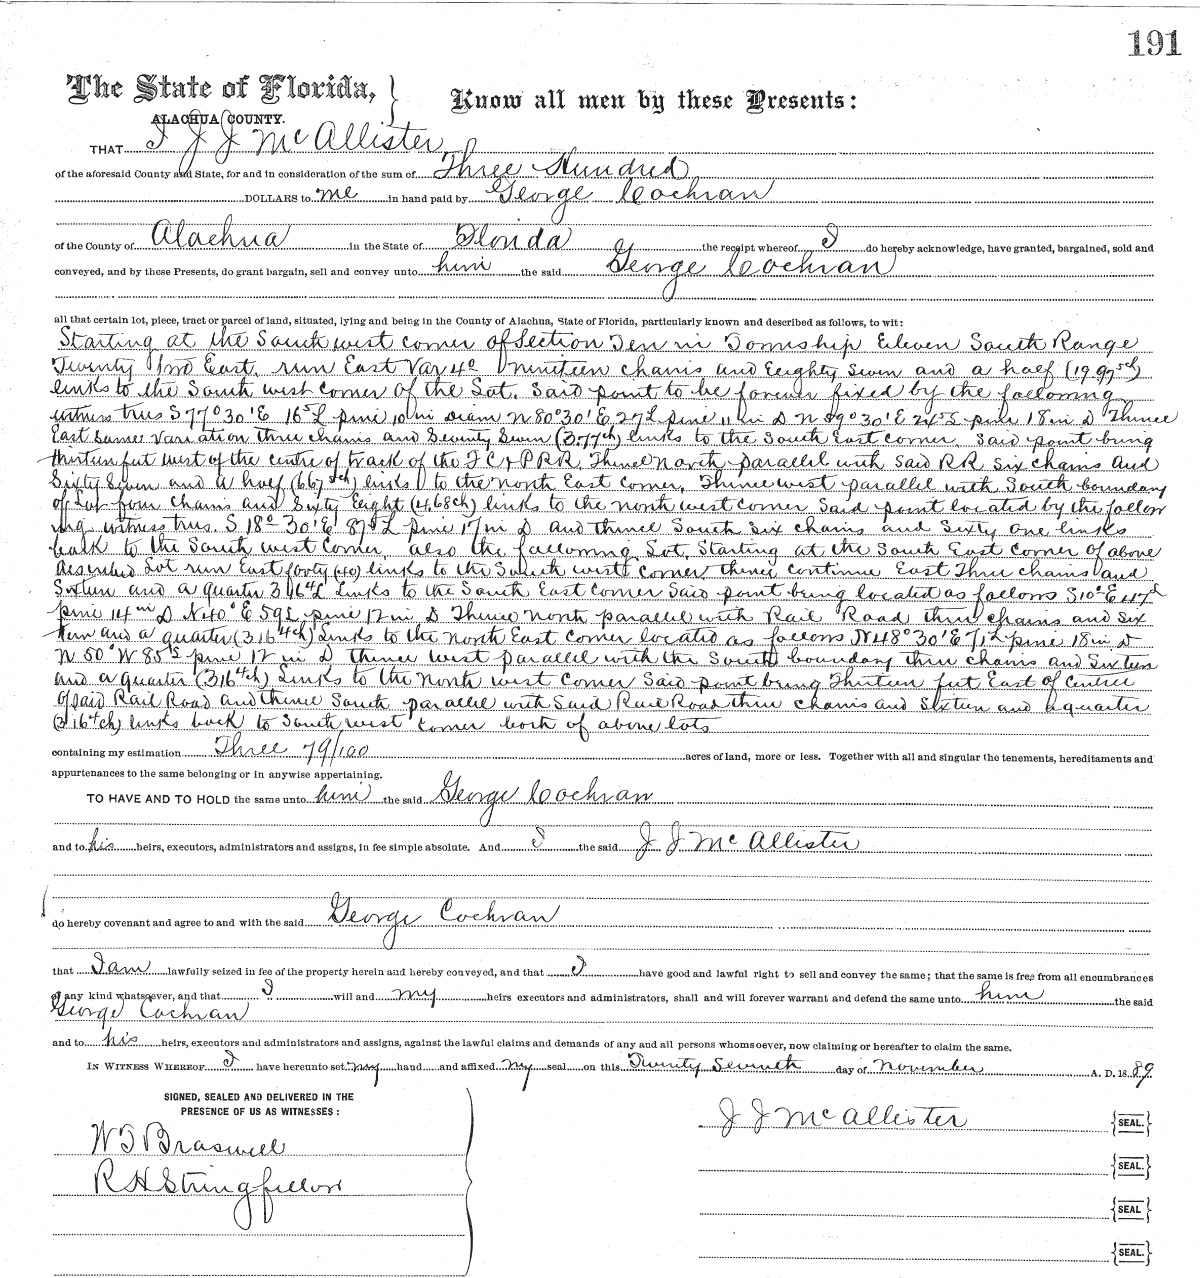 191
The State of Florida, Know all men by these Presents:
ALACHUA COUNTY.
THAT I J J McAllister
of the aforesaid County and State, for and in consideration of the sum of Three Hundred
DOLLARS to me in hand paid by George Cochran
of the County of Alachua in the State of Florida the receipt whereof I do hereby acknowledge, have granted, bargained, sold and
conveyed, and by these Presents, do grant bargain, sell and convey unto him the said George Cochran
all that certain lot, piece, tract or parcel of land, situated, lying and being in the County of Alachua, State of Florida, particularly known and described as follows, to wit:
Starting at the South west corner of Section Ten in Township Eleven South Range
Twenty Two East. run East Var 4° nineteen chains and Eeighty Seven and a half (19.97½ch)
links to the South west corner of the Lot. Said point to be forever fixed by the following
witness trees S 77° 30' E 16½ L pine 10 in Diam N 80° 30' E 27 L pine 11 in D N 89° 30' E 24½ L pine 18 in D Thence
East same variation three chains and Seventy Seven (3.77ch) links to the South East corner. Said point being
thirteen feet west of the centre of track of the F C & P R R. Thence North parallel with said R R Six chains and
Sixty Seven and a half (6.67½ch) links to the north East corner. Thence west parallel with South boundary
of Lot four chains and Sixty Eight (4.68ch) links to the north west corner Said point located by the follow
ing witness trees. S 18° 30' E 87 L pine 17 in D and thence South Six chains and Sixty one links
back to the South west corner. also the following Lot. Starting at the South East corner of above
described Lot run East forty (40) links to the South west corner. thence continue East Three chains and
Sixteen and a quarter 3 16¼ L Links to the South East corner Said point being located as follows S 10° E 47 L
pine 14 in D. N 40° E 59 L pine 12 in D Thence North parallel with Rail Road three chains and Six
teen and a quarter (3 16¼ch) Links to the North East corner located as follows N 48° 30' E 71 L pine 18 in D
N 50° W 85 L pine 12 in D thence west parallel with the South boundary three chains and Sixteen
and a quarter (316¼ch) Links to the North west corner Said point being Thirteen feet East of centre
of said Rail Road and thence South parallel with Said Rail Road three chains and Sixteen and a quarter
(3 16¼ch) links back to South west corner both of above lots
containing my estimation Three 79/100 acres of land, more or less. Together with all and singular the tenements, hereditaments and
appurtenances to the same belonging or in anywise appertaining.
TO HAVE AND TO HOLD the same unto him the said George Cochran
and to his heirs, executors, administrators and assigns, in fee simple absolute. And I the said J J McAllister
do hereby covenant and agree to and with the said George Cochran
that I am lawfully seized in fee of the property herein and hereby conveyed, and that I have good and lawful right to sell and convey the same; that the same is free from all encumbrances
of any kind whatsoever, and that I will and my heirs executors and administrators, shall and will forever warrant and defend the same unto him the said
George Cochran
and to his heirs, executors and administrators and assigns, against the lawful claims and demands of any and all persons whomsoever, now claiming or hereafter to claim the same.
IN WITNESS WHEREOF I have hereunto set my hand and affixed my seal on this Twenty Seventh day of November A. D. 1889
SIGNED, SEALED AND DELIVERED IN THE
PRESENCE OF US AS WITNESSES:
J J McAllister SEAL.
W T Braswell
SEAL.
R H Stringfellow
SEAL
SEAL.